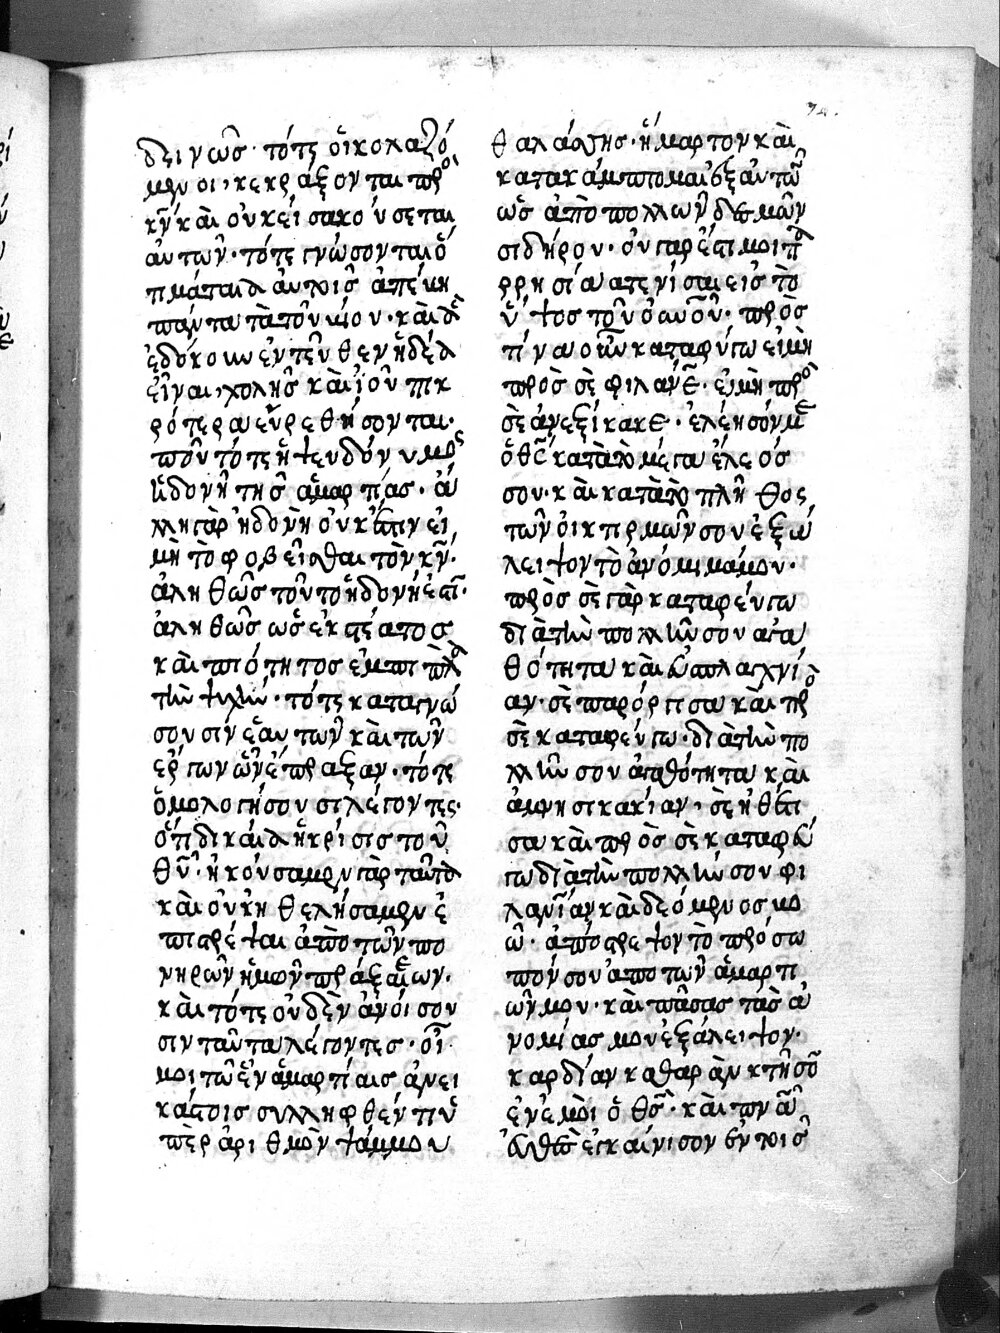 δεινῶς· τότε οἱ κολαζό
μενοι, κεκράξονται πρὸς
κν̄ καὶ οὐκ εἰσακούσεται
αὐτῶν· τότε γνώσονται ὅ
τι μάταια αὐτοῖς ἀπέβη
πάντα τὰ τοῦ βίου· καὶ ἃ
ἐδόκουν ἐντεῦθεν ἡδέα
εἶναι, χολῆς καὶ ἰοῦ πικ
ρότερα εὑρεθήσονται·
ποῦ τότε ἡ ψευδόνυμος
ἡδονὴ τῆς ἁμαρτίας· ἄ
λλη γὰρ ἡδονὴ οὐκ ἔστιν εἰ
μὴ τὸ φοβεῖσθαι τὸν κν̄·
ἀληθῶς τοῦτο ἡδονή ἐστι·
ἀληθῶς ὡς ἐκ στέατος
καὶ πιότητος ἐμπιπλᾶ
τὴν ψυχήν· τότε καταγνώ
σουσιν ἑαυτῶν καὶ τῶν
ἔργων ὧν ἔπραξαν· τότε
ὁμολογήσουσι λέγοντες·
ὅτι δικαία ἡ κρίσις τοῦ
θῡ· ἠκούσαμεν γὰρ ταῦτα
καὶ οὐκ ἠθελήσαμεν ἐ
πιστρέψαι ἀπὸ τῶν πο
νηρῶν ἡμῶν πράξεων·
καὶ τότε οὐδὲν ἀνοίσου
σιν ταῦτα λέγοντες· οἴ
μοι τῷ ἐν ἁμαρτίαις ἀνει
κάστοις συλληφθέντι ὑ
πὲρ ἀριθμὸν ψάμμου
θαλάσσης· ἥμαρτον καὶ
κατακάμπτομαι ἐξ αὐτῶν
ὡς ἀπὸ πολλῶν δεσμῶν
σιδήρου· οὐ γάρ ἐστί μοι πα
ρρησία ἀτενίσαι εἰς τὸ
ὕψος τοῦ οὐνοῦ· πρὸς
τίνα οὖν καταφύγω εἰ μὴ
πρὸς σὲ φιλανε̄· εἰ μὴ πρὸς
σὲ ἀνεξίκακε· ἐλέησόν με
ὁ θς̄ κατὰ τὸ μέγα ἔλεός
σου· καὶ κατὰ τὸ πλῆθος
τῶν οἰκτιρμῶν σου ἐξά
λειψον τὸ ἀνόμημά μου·
πρὸς σὲ γὰρ καταφεύγω
διὰ τὴν πολλήν σου ἀγα
θότητα καὶ εὐσπλαγχνί
αν· σὲ παρόργισα καὶ πρὸς
σὲ καταφεύγω· διὰ τὴν πο
λλήν σου ἀγαθότητα καὶ
ἀμνησικακίαν· σὲ ἠθέτη
σα καὶ πρὸς σὲ καταφεύ
γω διὰ τὴν πολλήν σου φι
λανίαν καὶ δεόμενος βο
ῶ· ἀπόστρεψον τὸ πρόσω
πόν σου ἀπὸ τῶν ἁμαρτι
ῶν μου· καὶ πάσας τὰς ἀ
νομίας μου ἐξάλειψον·
καρδίαν καθαρὰν κτῆσον
ἐν ἐμοὶ ὁ θς̄· καὶ πνᾱ
εὐθὲς ἐγκαίνισον ἐν τοῖς